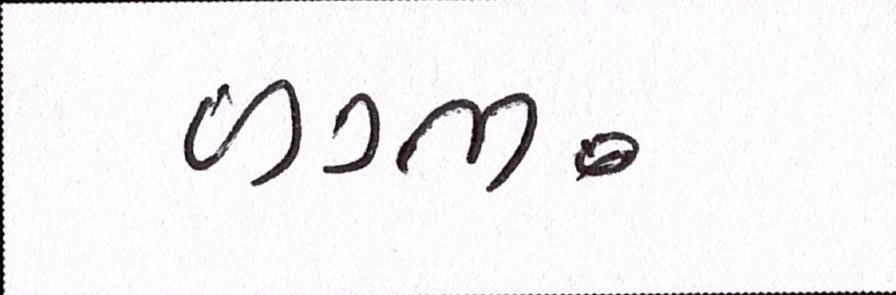 ഗാനം